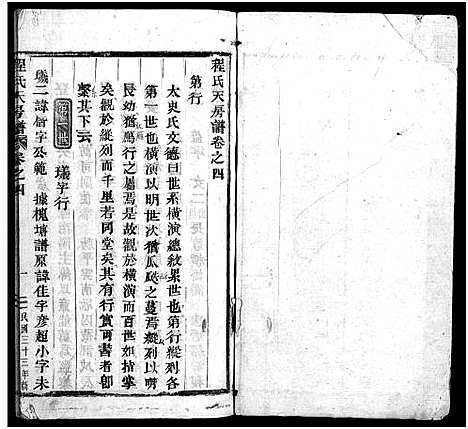 程氏天房譜卷之四
第行
太史氏文德曰世系橫演總敘累世也第行縱列各
第一世也橫演以明世次猶瓜瓞之蔓焉縱列以嘶
長幼猶鴈行之屬焉是故觀於橫演而百世如指掌
矣觀於縱列而千里若同堂矣其有行實可書者卽
繫其下云
璣字行
璣二諱偕字公範 據槐塘譜原諱佳字彥超小字未
程氏天房譜 卷之四 一 民國三十三年修